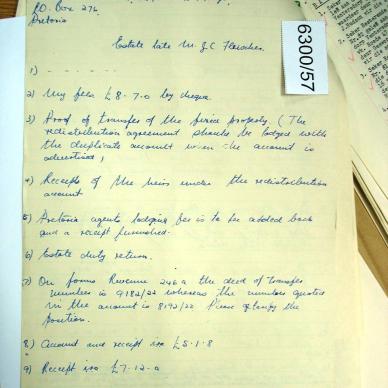 P.O. Box 276
Pretoria
6300/57
Estate late M. J. C.
1) - - - - - -
2) My fees £8.7.0 by cheque.
3) Proof of transfer of the fixed property. (The
redistribution agreement should be lodged with
the duplicate account when the account is
advertised)
4) Receipts of the heirs under the redistribution
account
5) Pretoria agents lodging fee is to be added back
and a receipt furnished.
6) Estate duty return.
7) On forms Revenue 246a the deed of transfer
number is 9182/22 whereas the number quoted
in the account is 8192/22 Please the
position.
8) Account and receipt £5.1.8
9) Receipt £7.12.0